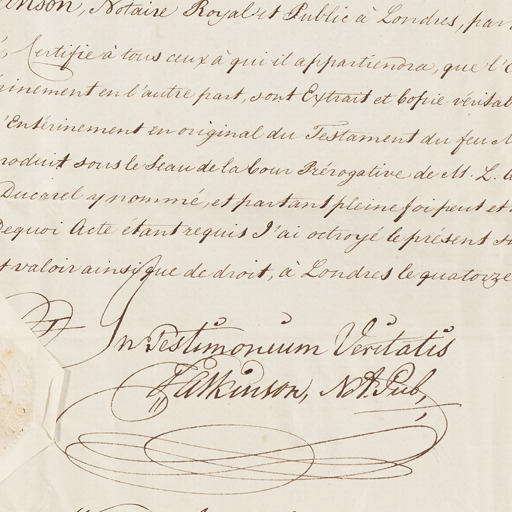 inson, Notaire Royal et Public à Londres, par
Certifie à tous ceux à qui il appartiendra, que l'
inement en l'autre part, sont Extrait et Copie véritab
l'Entérinement en original du Testament du feu M
roduit sous le Seau de la Cour Prérogative de M. L. A
Ducarel y nommé, et partant pleine foi peut et
Dequoi Acte étant requis J'ai octroyé le présent
t valoir ainsi que de droit, à Londres le quatorze
In Testimonium Veritatis
Atkinson, Not. Pub,